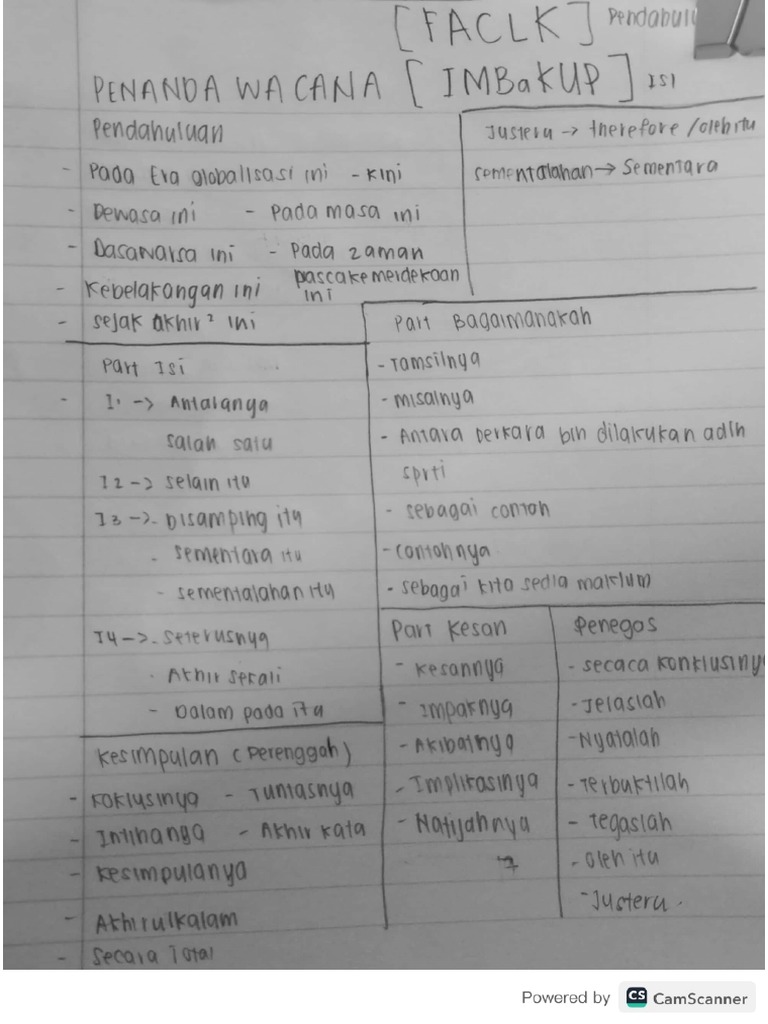 [FACLK] Pendahulu
PENANDA WACANA [IMBaKUP] ISI
Pendahuluan
- Pada Era globalisasi ini - Kini
- Dewasa ini - Pada masa ini
- Dasawarsa ini - Pada zaman pascakemerdekaan ini
- Kebelakangan ini
- sejak akhir² ini
Justeru -> therefore / oleh itu
sementalahan -> Sementara
Part Isi
- I1 -> Antaranya
salah satu
I2 -> selain itu
I3 ->. Disamping itu
- sementara itu
- sementalahan itu
I4 ->. Seterusnya
- Akhir sekali
- Dalam pada itu
Part Bagaimanakah
- Tamsilnya
- misalnya
- Antara perkara blh dilakukan adlh
sprti
- sebagai contoh
- contohnya
- sebagai kita sedia maklum
Kesimpulan (Perenggan)
- Koklusinya - Tuntasnya
- Intihanya - Akhir kata
- Kesimpulanya
- Akhirulkalam
- Secara Total
Part Kesan
- Kesannya
- Impaknya
- Akibatnya
- Implikasinya
- Natijahnya
Penegas
- secara konklusiny
- Jelaslah
- Nyatalah
- Terbuktilah
- Tegaslah
- oleh itu
- Justeru.
Powered by CS CamScanner